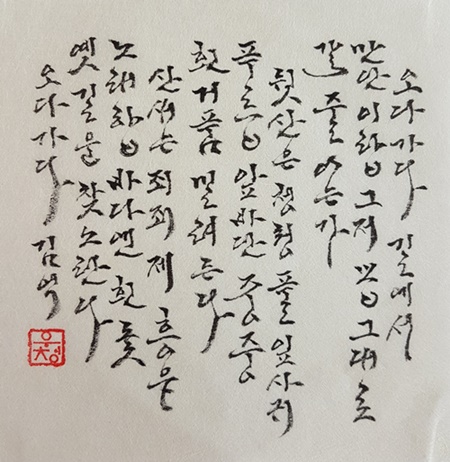 오다가다 길에서
만난 이라고 그저 보고 그대로
갈 줄 아는가
뒷산은 청청 풀 잎사귀
푸르고 앞바단 중중
흰 거품 밀려 든다
산새는 죄죄 제 흥을
노래하고 바다엔 흰 돛
옛길을 찾노란다
오다가다 김억